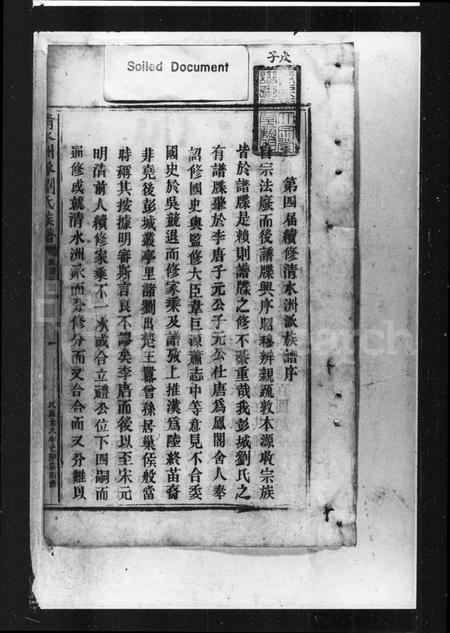 Soiled Document
戊子
第四屆續修清水洲派族譜序
自宗法廢而後譜牒興序昭穆辨親疏敦本源收宗族
皆於譜牒是賴則譜牒之修不綦重哉我彭城劉氏之
有譜牒肇於李唐子元公子元公仕唐為鳳閣舍人奉
詔修國史與監修大臣韋巨源蕭志中等意見不合委
國史於吳兢退而修家乘及譜攷上推漢為陸終苗裔
非堯後彭城叢亭里諸劉出楚王囂曾孫居巢侯般當
時稱其按據明審斯言良不謬矣李唐而後以至宋元
明清前人續修家乘不一次或合立禮公位下四嗣而
通修或就清水洲派而分修分而又合合而又分難以
清水洲派劉氏族譜